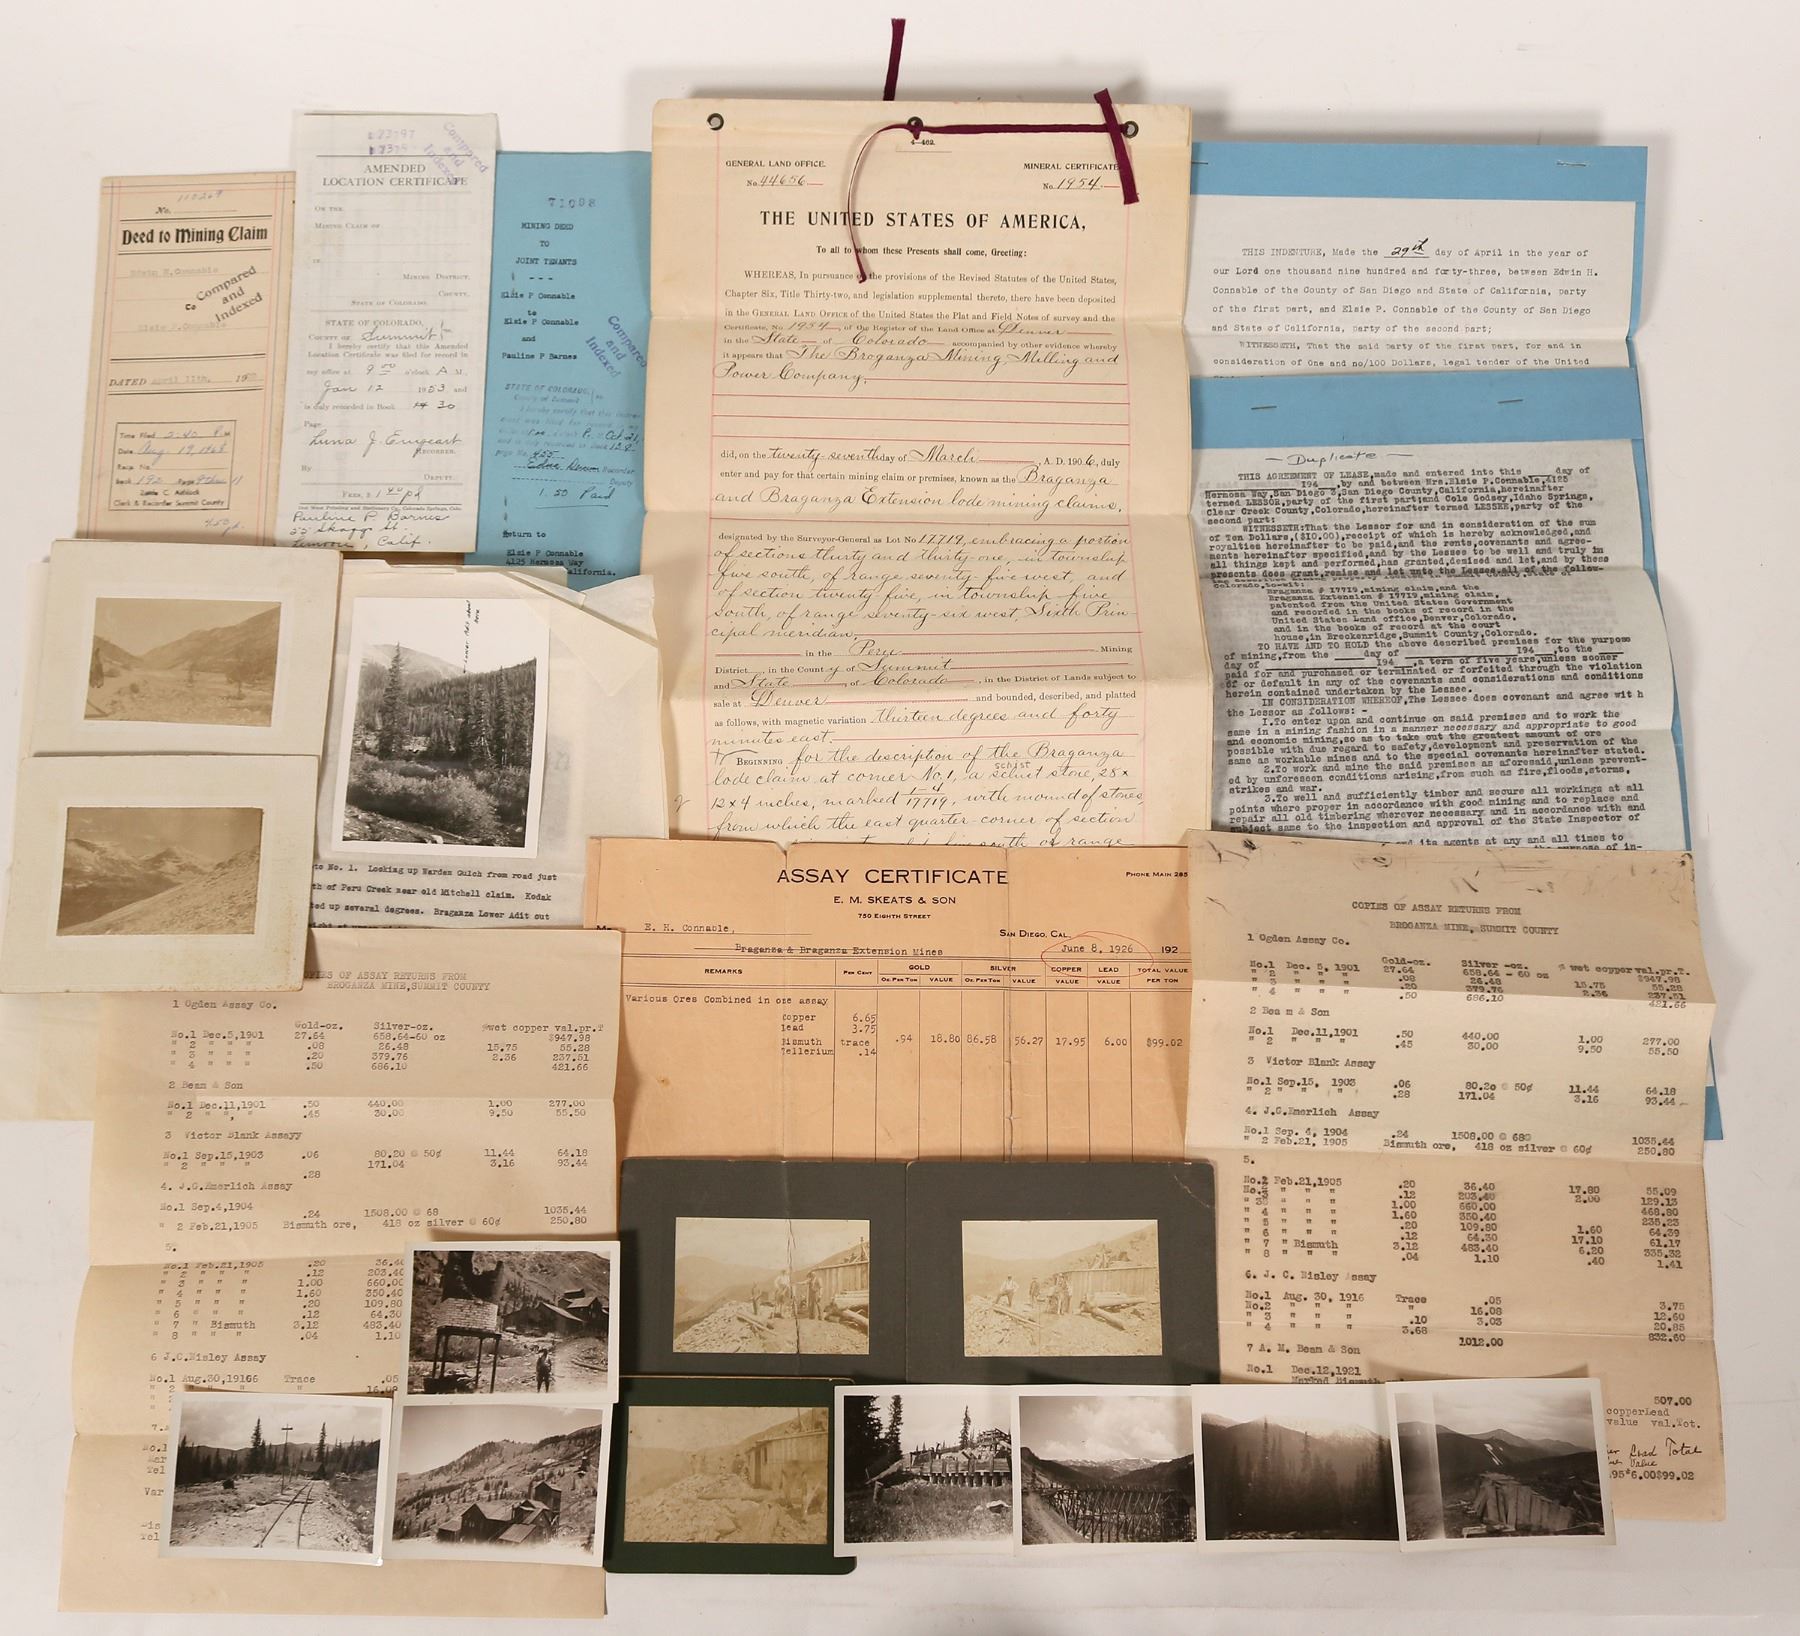 No. 110269
Deed to Mining Claim
Edwin H. Connable
to
Elsie P. Connable
Compared
and
Indexed
DATED April 11th, 19
Time Filed 2:40 P. M
Date Aug. 19, 1968
Recp. No.
Book 192 Page
Clerk & Recorder Summit County
AMENDED
LOCATION CERTIFICATE
Compared
and
Indexed
ON THE
MINING CLAIM OF
IN
MINING DISTRICT,
COUNTY,
STATE OF COLORADO.
STATE OF COLORADO,
COUNTY OF Summit
I hereby certify that this Amended
Location Certificate was filed for record in
my office at 9 00 o'clock A. M.,
Jan 12 1953 and
is duly recorded in Book 30
Page
RECORDER.
By
DEPUTY.
FEES, $ 1 40 pd
Pauline P. Barnes
55 Skagg St.
Lemoore, Calif.
71098
MINING DEED
TO
JOINT TENANTS
---
Elsie P Connable
to
Elsie P Connable
and
Pauline P Barnes
Compared
and
Indexed
STATE OF COLORADO,
County of Summit
1.50 Paid
Return to
Elsie P Connable
4125 Hermosa Way
California.
4-462.
GENERAL LAND OFFICE.
No. 44656
MINERAL CERTIFICATE
No. 1954
THE UNITED STATES OF AMERICA,
To all to whom these Presents shall come, Greeting:
WHEREAS, In pursuance of the provisions of the Revised Statutes of the United States,
Chapter Six, Title Thirty-two, and legislation supplemental thereto, there have been deposited
in the GENERAL LAND OFFICE of the United States the Plat and Field Notes of survey and the
Certificate, No. 1954, of the Register of the Land Office at Denver
in the State of Colorado accompanied by other evidence whereby
it appears that The Broganza Mining Milling and
Power Company,
did, on the twenty-seventh day of March, A. D. 1906, duly
enter and pay for that certain mining claim or premises, known as the Braganza
and Braganza Extension lode mining claims,
designated by the Surveyor-General as Lot No. 17719, embracing a portion
of sections thirty and thirty-one, in township
five south, of range seventy-five west, and
of section twenty-five, in township five
south, of range seventy-six west, Sixth Prin-
cipal meridian,
in the Peru Mining
District, in the County of Summit
and State of Colorado, in the District of Lands subject to
sale at Denver and bounded, described, and platted
as follows, with magnetic variation thirteen degrees and forty
minutes east.
BEGINNING for the description of the Braganza
lode claim at corner No. 1, a schist stone, 28 x
12 x 4 inches, marked 1-4/17719, with mound of stones,
from which the east quarter-corner of section
THIS INDENTURE, Made the 29th day of April in the year of
our Lord one thousand nine hundred and forty-three, between Edwin H.
Connable of the County of San Diego and State of California, party
of the first part, and Elsie P. Connable of the County of San Diego
and State of California, party of the second part;
WITNESSETH, That the said party of the first part, for and in
consideration of One and no/100 Dollars, legal tender of the United
Duplicate
THIS AGREEMENT OF LEASE,made and entered into this ___ day of
194_,by and between Mrs.Elsie P.Connable,4125
Hermosa Way,San Diego 3,San Diego County,California,hereinafter
termed LESSOR,party of the first part;and Cole Godsey,Idaho Springs,
Clear Creek County,Colorado,hereinafter termed LESSEE,party of the
second part:
WITNESSETH:That the Lessor for and in consideration of the sum
of Ten Dollars,($10.00),receipt of which is hereby acknowledged,and
royalties hereinafter to be paid,and the rents,covenants and agree-
ments hereinafter specified,and by the Lessee to be well and truly in
all things kept and performed,has granted,demised and let,and by these
presents does grant,remise and let unto the Lessee,all of the follow-
colorado,to-wit:
Braganza # 17719,mining claim,and the
Braganza Extension # 17719,mining claim,
patented from the United States Government
and recorded in the books of record in the
United States Land office,Denver,Colorado.
and in the books of record at the court
house,in Breckenridge,Summit County,Colorado.
TO HAVE AND TO HOLD the above described premises for the purpose
of mining,from the ___ day of ___ 194_,to the ___
day of ___ 194_,a term of five years,unless sooner
paid for and purchased or terminated or forfeited through the violation
of or default in any of the covenants and considerations and conditions
herein contained undertaken by the Lessee.
IN CONSIDERATION WHEREOF,The Lessee does covenant and agree wit h
the Lessor as follows: -
1.To enter upon and continue on said premises and to work the
same in a mining fashion in a manner necessary and appropriate to good
and economic mining,so as to take out the greatest amount of ore
possible with due regard to safety,development and preservation of the
same as workable mines and to the special covenants hereinafter stated.
2.To work and mine the said premises as aforesaid,unless prevent-
ed by unforeseen conditions arising,from such as fire,floods,storms,
strikes and war.
3.To well and sufficiently timber and secure all workings at all
points where proper in accordance with good mining and to replace and
repair all old timbering wherever necessary and in accordance with and
subject same to the inspection and approval of the State Inspector of
and its agents at any and all times to
No. 1. Looking up Warden Gulch from road just
th of Peru Creek near old Mitchell claim. Kodak
ted up several degrees. Braganza Lower Adit out
ASSAY CERTIFICATE
PHONE MAIN 285
E. M. SKEATS & SON
750 EIGHTH STREET
M E. H. Connable,
SAN DIEGO, CAL.
Braganza & Braganza Extension Mines
June 8, 1926 192
REMARKS PER CENT GOLD SILVER COPPER LEAD TOTAL VALUE
OZ. PER TON VALUE OZ. PER TON VALUE VALUE VALUE PER TON
Various Ores Combined in one assay
Copper 6.65
Lead 3.75
Bismuth trace .94 18.80 86.58 56.27 17.95 6.00 $99.02
Tellerium .14
COPIES OF ASSAY RETURNS FROM
BROGANZA MINE,SUMMIT COUNTY
1 Ogden Assay Co.
Gold-oz. Silver-oz. %wet copper val.pr.T
No.1 Dec.5,1901 27.64 658.64-60 oz $947.98
" 2 " " " .08 26.48 15.75 55.28
" 3 " " " .20 379.76 2.36 237.51
" 4 " " " .50 686.10 421.66
2 Beam & Son
No.1 Dec.11,1901 .50 440.00 1.00 277.00
" 2 " " " .45 30.00 9.50 55.50
3 Victor Blank Assayy
No.1 Sep.15,1903 .06 80.20 @ 50¢ 11.44 64.18
" 2 " " " 171.04 3.16 93.44
.28
4. J.G.Emerlich Assay
No.1 Sep.4,1904 .24 1508.00 @ 68 1035.44
" 2 Feb.21,1905 Bismuth ore, 418 oz silver @ 60¢ 250.80
5.
No.1 Feb.21,1905 .20 36.40
" 2 " " " .12 203.40
" 3 " " " 1.00 660.00
" 4 " " " 1.60 350.40
" 5 " " " .20 109.80
" 6 " " " .12 64.30
" 7 " Bismuth 3.12 483.40
" 8 " " " .04 1.10
6 J.C.Risley Assay
No.1 Aug.30,19166 Trace .05
16.08
COPIES OF ASSAY RETURNS FROM
BROGANZA MINE, SUMMIT COUNTY
1 Ogden Assay Co.
Gold-oz. Silver -oz. % wet copper val.pr.T.
No.1 Dec. 5, 1901 27.64 658.64 - 60 oz $947.98
" 2 " " " .08 26.48 15.75 55.28
" 3 " " " .20 379.76 2.36 237.51
" 4 " " " .50 686.10 421.66
2 Bea m & Son
No.1 Dec.11,1901 .50 440.00 1.00 277.00
" 2 " " " .45 30.00 9.50 55.50
3 Victor Blank Assay
No.1 Sep.15, 1903 .06 80.20 @ 50¢ 11.44 64.18
" 2 " " " .28 171.04 3.16 93.44
4. J.G.Emerlich Assay
No.1 Sep. 4, 1904 .24 1508.00 @ 68@ 1035.44
" 2 Feb.21, 1905 Bismuth ore, 418 oz silver @ 60¢ 250.80
5.
No.1 Feb.21,1905 .20 36.40 17.80 55.09
No.2 " " " .12 203.40 2.00 129.13
" 3 " " " 1.00 660.00 468.80
" 4 " " " 1.60 350.40 235.23
" 5 " " " .20 109.80 1.60 64.39
" 6 " " " .12 64.30 17.10 61.17
" 7 " Bismuth 3.12 483.40 6.20 335.32
" 8 " " " .04 1.10 .40 1.41
6. J. C. Risley Assay
No.1 Aug. 30, 1916 Trace .05 3.75
No.2 " " " 16.08 12.60
" 3 " " " .10 3.03 20.85
" 4 " " " 3.68 1012.00 832.60
7 A. M. Beam & Son
No.1 Dec.12,1921
Marked Bismuth
507.00
copperLead
value val.Tot.
Lead Total
Value
95*6.00$99.02